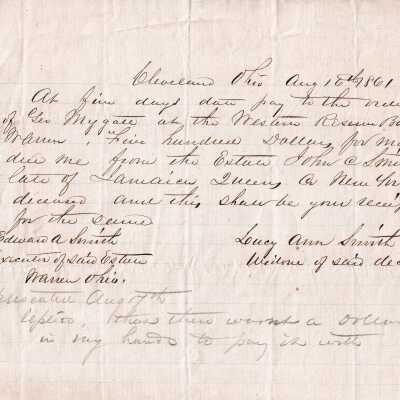 Cleveland Ohio Aug 10th 1861
At five days date pay to the order
of Geo Mygatt at the Western Reserve Ba
Warren, Five hundred Dollars, for my
due me from the Estate John C Smi
late of Jamaica, Queens Co New Yor
deceased and this shall be your receip
for the same
Edward A Smith
Lucy Ann Smith
Executor of said Estate
Widow of said dec
Warren Ohio.
Presented Aug 17th
there wasnt a Dollar
in my hands to pay it with